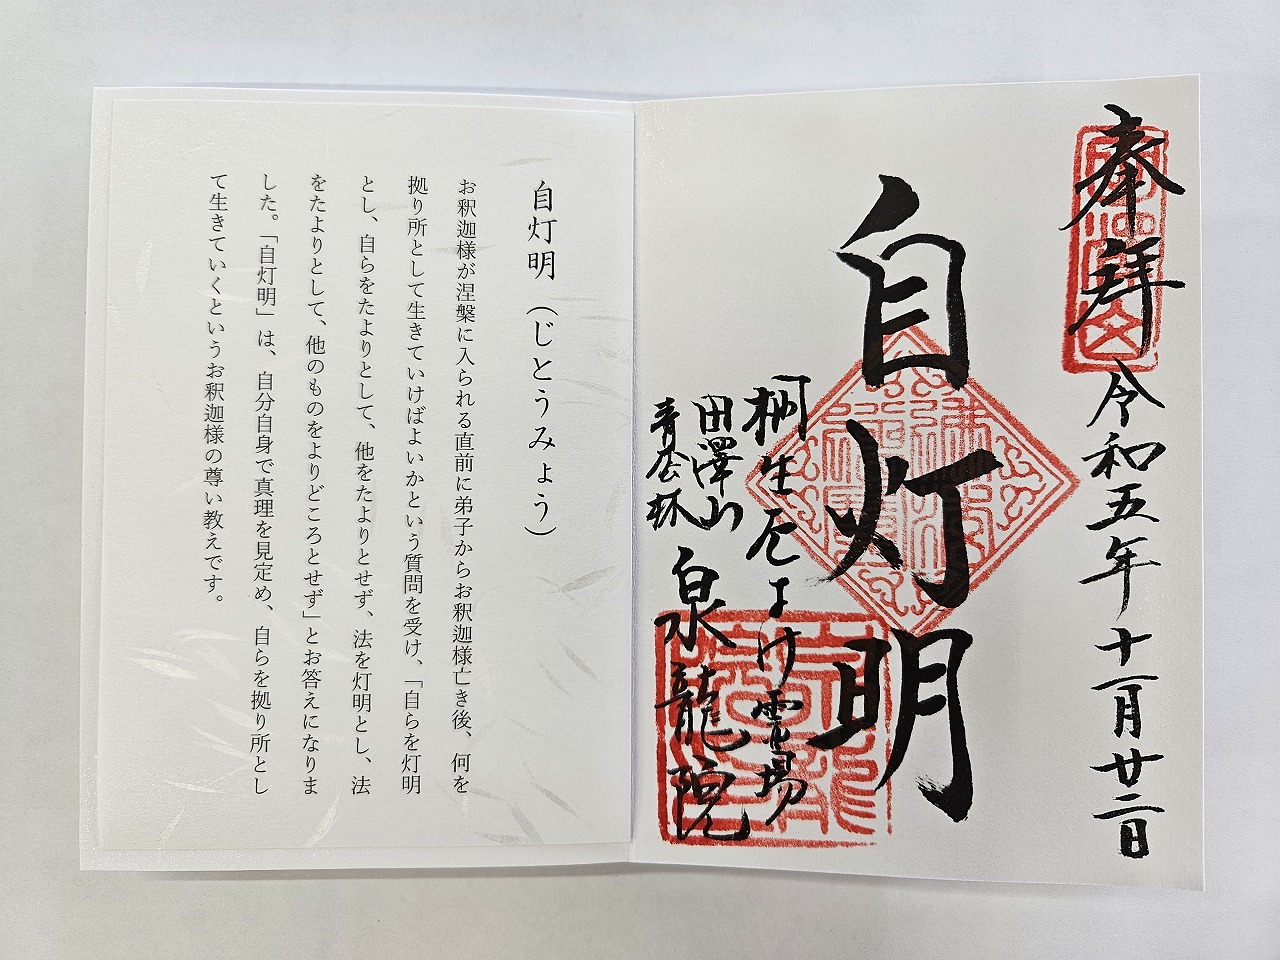 奉拝 令和五年十一月廿二日
自灯明
桐生厄よけ霊場
田澤山
泉龍院
自灯明(じとうみょう)
お釈迦様が涅槃に入られる直前に弟子からお釈迦様亡き後、何を
拠り所として生きていけばよいかという質問を受け、「自らを灯明
とし、自らをたよりとして、他をたよりとせず、法を灯明とし、法
をたよりとして、他のものをよりどころとせず」とお答えになりま
した。「自灯明」は、自分自身で真理を見定め、自らを拠り所とし
て生きていくというお釈迦様の尊い教えです。